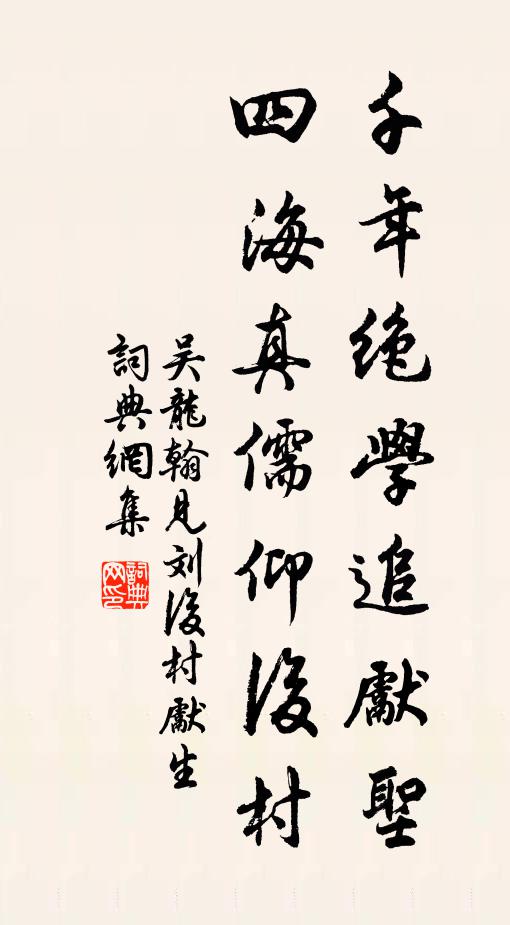 千年绝學追獻聖
四海真儒仰後村
吴龍翰見刘後村獻生
詞典網集
詞典网印